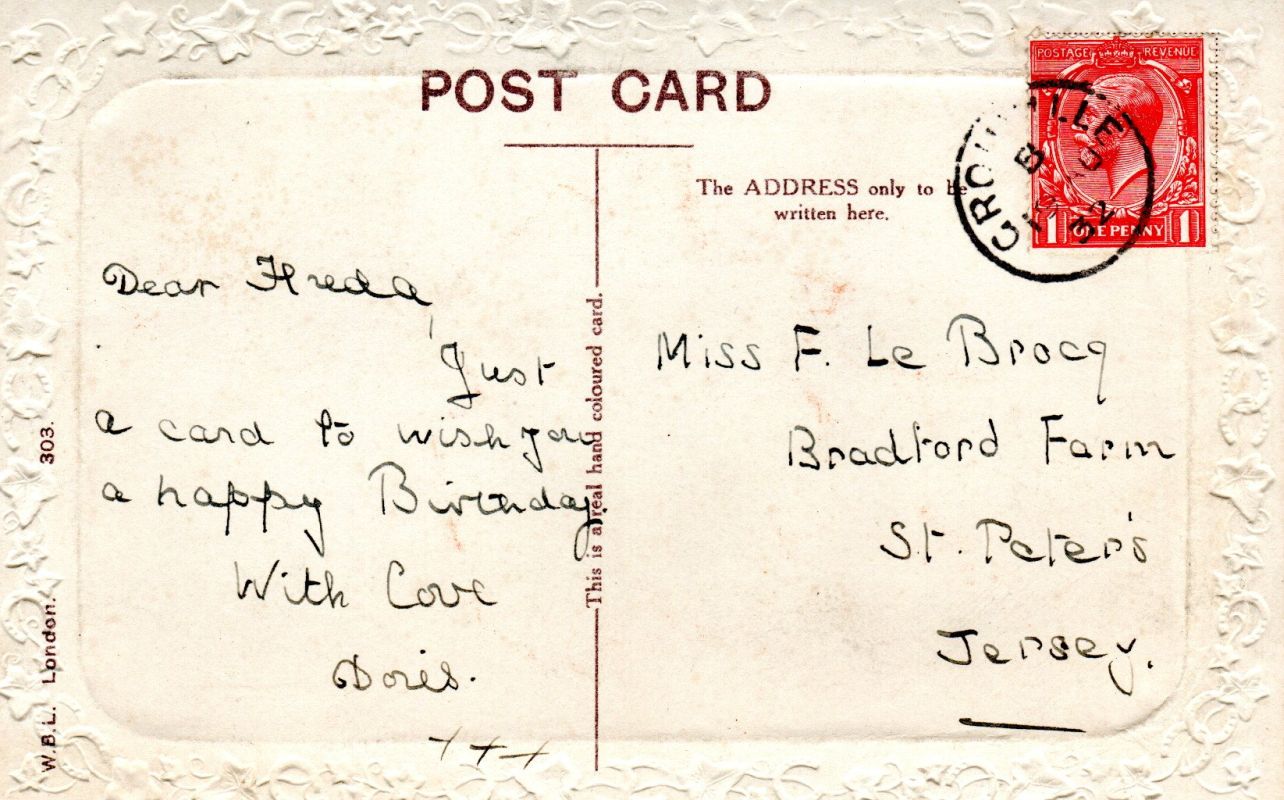 POST CARD
The ADDRESS only to be
written here.
POSTAGE REVENUE
1 ONE PENNY 1
GROUVILLE
B
32
Dear Freda,
Just
a card to wish you
a happy Birthday.
With Love
Doris.
+++
Miss F. Le Brocq
Bradford Farm
St. Peter's
Jersey.
This is a real hand coloured card.
W.B.L. London. 303.